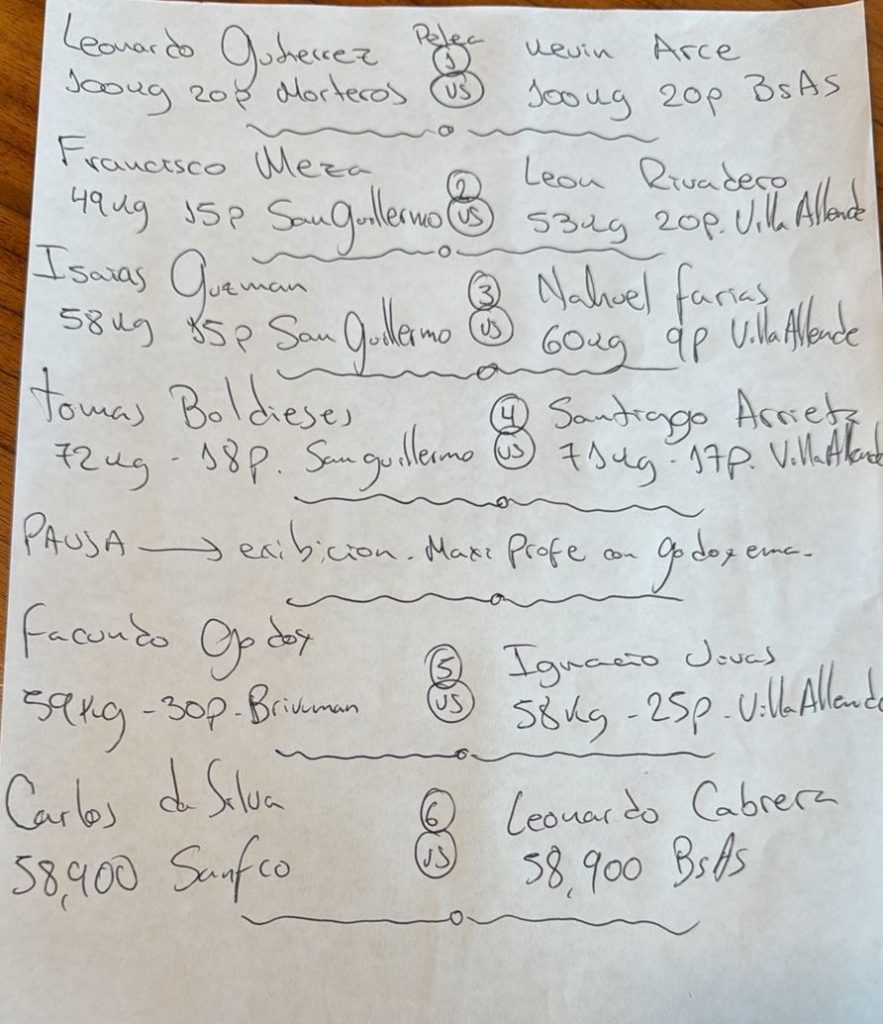 Leonardo Gutierrez Pelea 1 Kevin Arce
100kg 20p Morteros VS 100kg 20p BsAs
Francisco Meza 2 Leon Rivadero
49kg 15p San Guillermo VS 53kg 20p. Villa Allende
Isaias Guzman 3 Nahuel farias
58kg 15p San Guillermo VS 60kg 9p Villa Allende
tomas Boldieses 4 Santiago Arrieta
72kg - 18p. San guillermo VS 71kg - 17p. Villa Allende
PAUSA → exibicion. Maxi Profe con godoy ema.
facundo Godoy 5 Ignacio Vivas
59kg - 30p - Brinkman VS 58kg - 25p - Villa Allende
Carlos da Silva 6 Leonardo Cabrera
58,900 Sanfco VS 58,900 BsAs